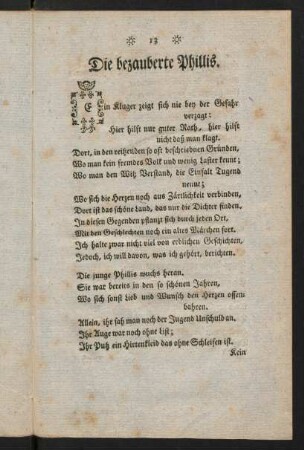 13
Die bezauberte Phillis.
Ein Kluger zeigt sich nie bey der Gefahr
verzagt:
Hier hilft nur guter Rath, hier hilft
nicht daß man klagt.
Dort, in den reitzenden so oft beschriebnen Gründen,
Wo man kein fremdes Volk und wenig Laster kennt;
Wo man den Witz Verstand, die Einfalt Tugend
nennt;
Wo sich die Herzen noch aus Zärtlichkeit verbinden,
Dort ist das schöne Land, das nur die Dichter finden,
In diesen Gegenden pflanzt sich durch jeden Ort,
Mit den Geschlechten noch ein altes Mährchen fort.
Ich halte zwar nicht viel von erdlichen Geschichten,
Jedoch, ich will davon, was ich gehört, berichten.
Die junge Phillis wuchs heran.
Sie war bereits in den so schönen Jahren,
Wo sich sonst Lieb und Wunsch den Herzen offen-
bahren.
Allein, ihr sah man noch der Jugend Unschuld an.
Ihr Auge war noch ohne List;
Ihr Putz ein Hirtenkleid das ohne Schleifen ist.
Kein